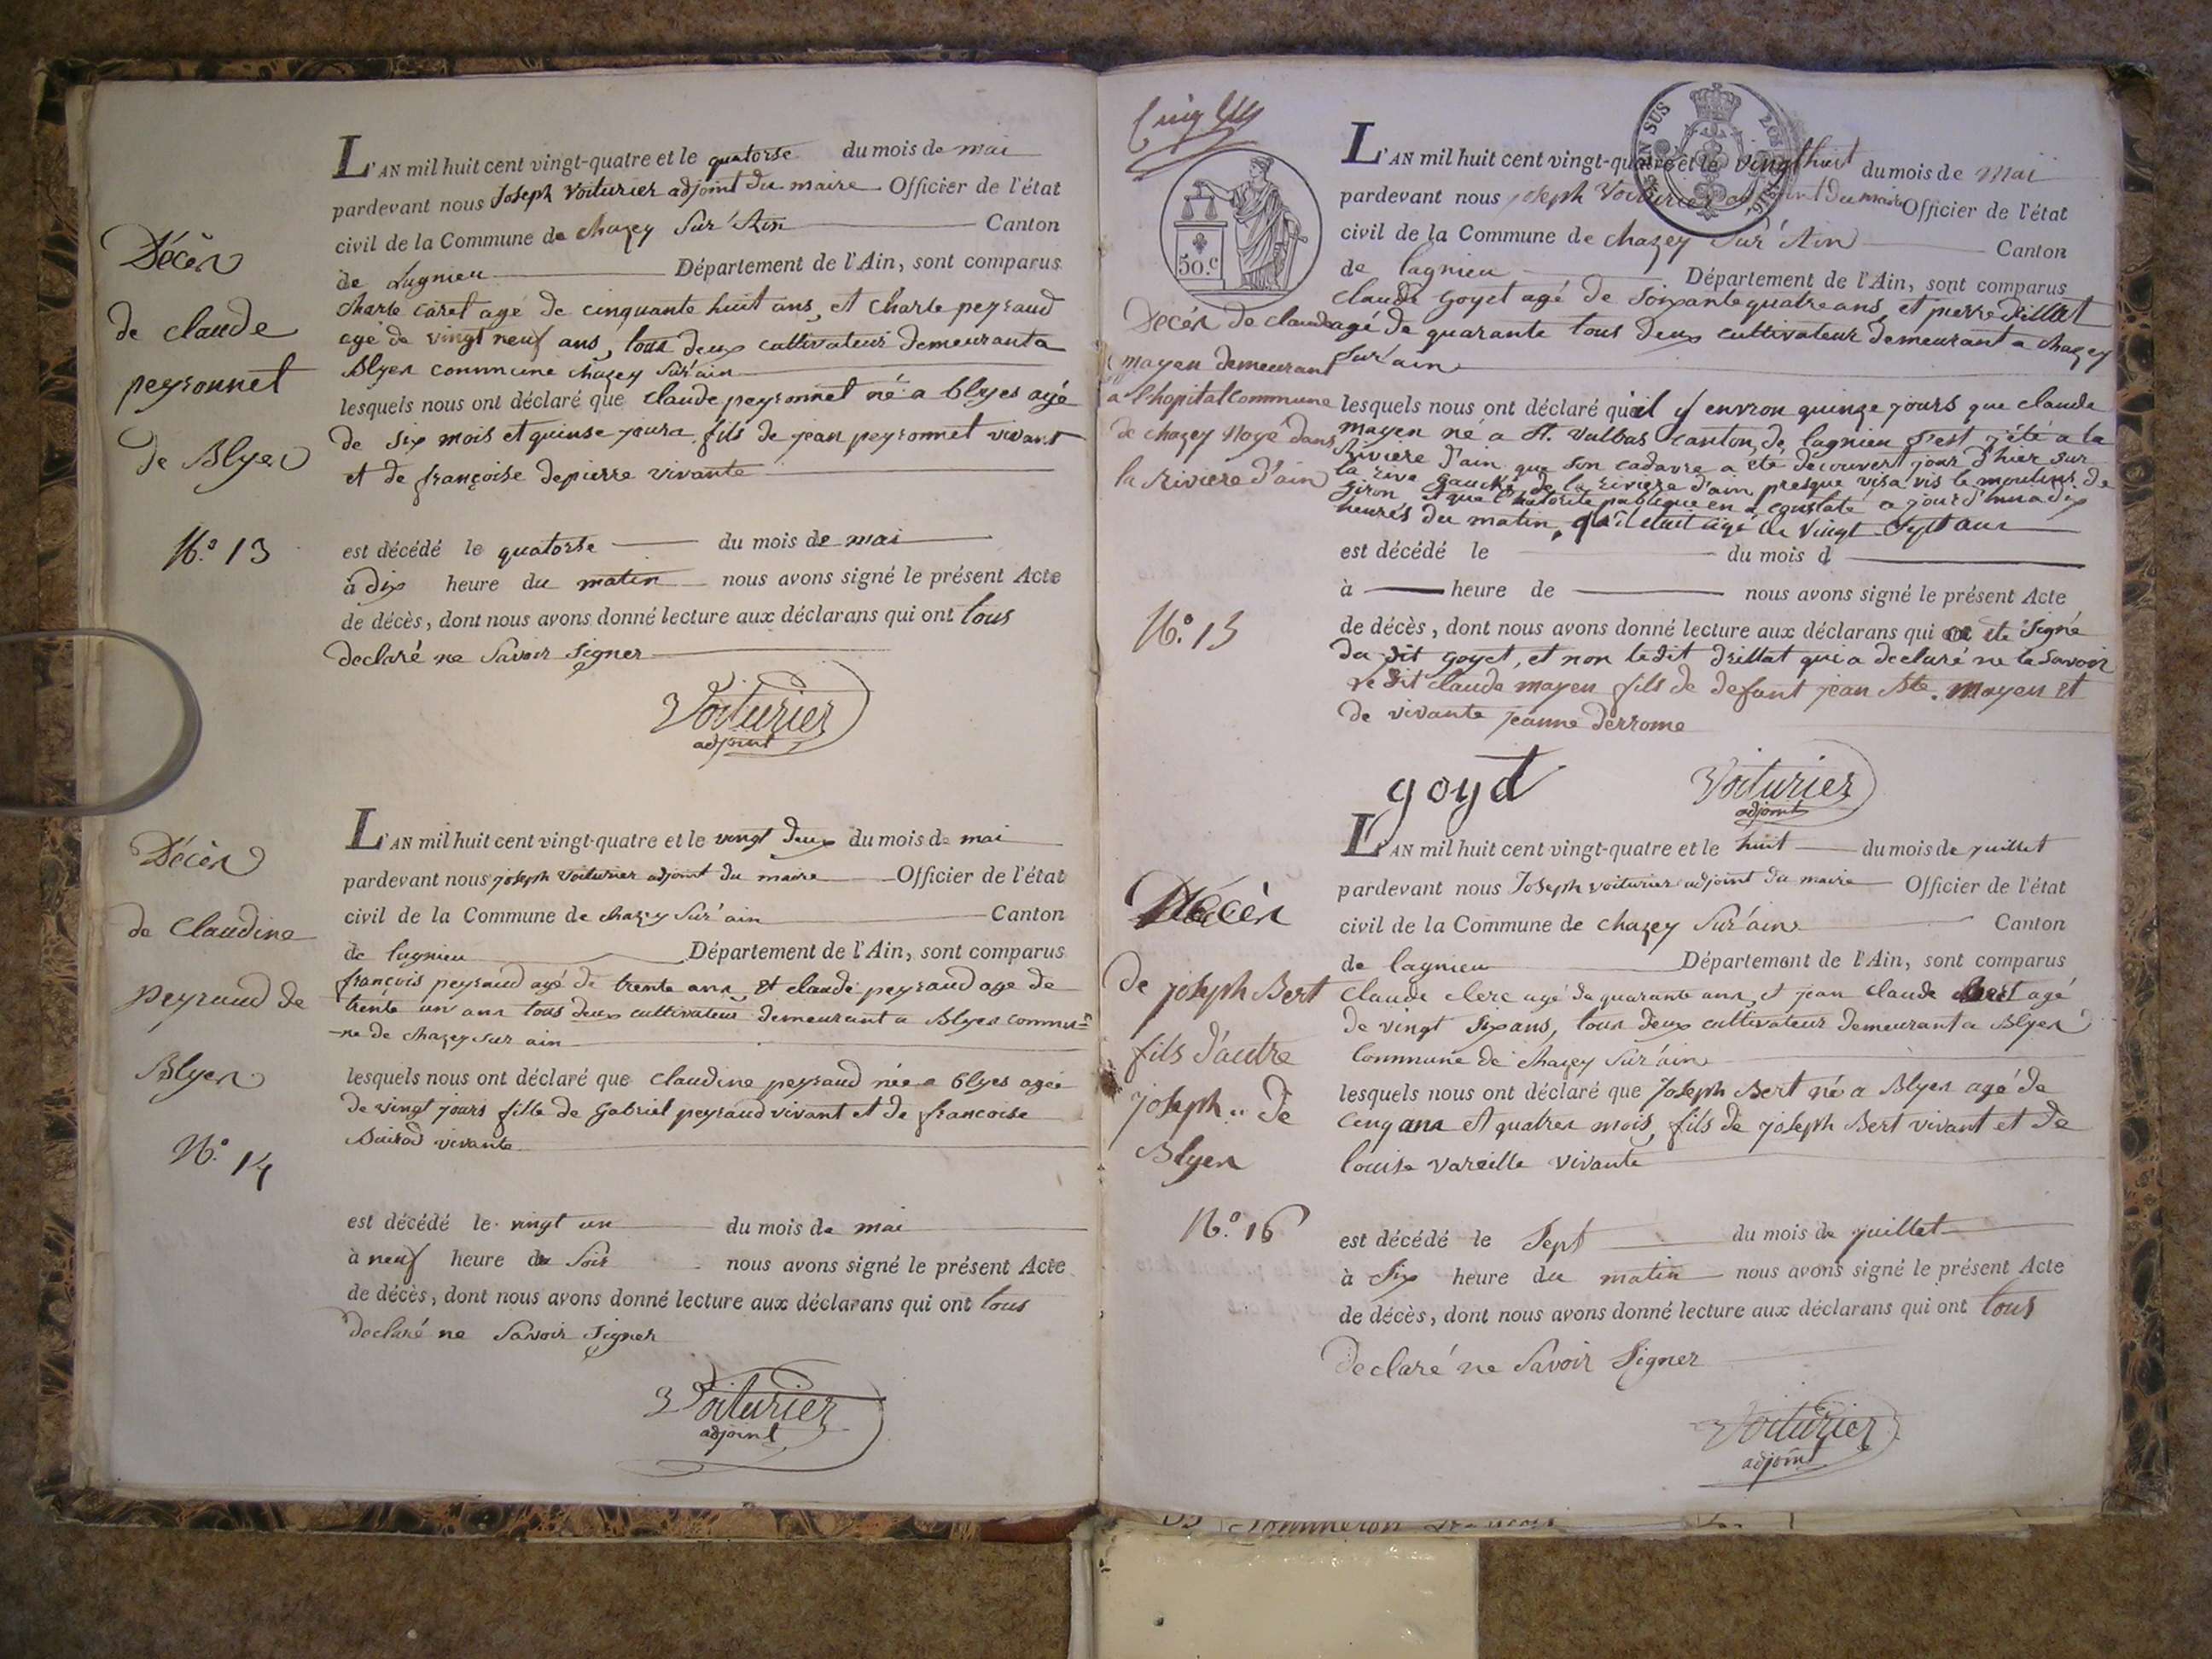 Décès
de claude
peyronnet
de Blyes
N.° 13
L'AN mil huit cent vingt-quatre et le quatorse du mois de mai
pardevant nous Joseph Voiturier adjoint du maire Officier de l'état
civil de la Commune de chazey Sur'Ain Canton
de Lagnieu Département de l'Ain, sont comparus
charle caret agé de cinquante huit ans, et Charle peyraud
agé de vingt neuf ans, tous deux cultivateur demeurant a
Blyes commune chazey Sur'ain
lesquels nous ont déclaré que claude peyronnet né a blyes agé
de six mois et quinse jours fils de jean peyronnet vivant
et de françoise depierre vivante
est décédé le quatorse du mois de mai
à dix heure du matin nous avons signé le présent Acte
de décès, dont nous avons donné lecture aux déclarans qui ont tous
declaré ne Savoir Signer
Voiturier
adjoint
Décès
de Claudine
peyraud de
Blyes
N.° 14
L'AN mil huit cent vingt-quatre et le vingt deux du mois de mai
pardevant nous joseph Voiturier adjoint du maire Officier de l'état
civil de la Commune de chazey Sur'ain Canton
de lagnieu Département de l'Ain, sont comparus
françois peyraud agé de trente ans et claude peyraud age de
trente un ans tous deux cultivateur demeurant a Blyes commu=
-ne de chazey sur ain
lesquels nous ont déclaré que claudine peyraud née a blyes agée
de vingt jours fille de gabriel peyraud vivant et de francoise
vivante
est décédé le vingt un du mois de mai
à neuf heure du Soir nous avons signé le présent Acte
de décès, dont nous avons donné lecture aux déclarans qui ont tous
declaré ne Savoir Signer
Voiturier
adjoint
50.c
Decés de claude
mayen demeurant
a l'hopital Commune
de chazey Noyé dans
la Riviere d'ain
N.° 15
L'AN mil huit cent vingt-quatre et le vingt huit du mois de mai
pardevant nous joseph Voiturier adjoint du maire Officier de l'état
civil de la Commune de chazey Sur'Ain Canton
de lagnieu Département de l'Ain, sont comparus
claude goyet agé de soixante quatre ans, et pierre drillat
agé de quarante tous deux cultivateur demeurant a chazey
Sur'ain
lesquels nous ont déclaré qu'il y environ quinze jours que claude
mayen né a St. Vulbas canton de lagnieu s'est jété a la
Riviere d'ain que son cadavre a été découvert jour d'hier sur
la rive gauche de la riviere d'ain presque vis a vis le moulins de
giron et que l'autorité publique en a constaté a jourd'hui a dix
heures du matin, qu'il etait agé de vingt Sept ans
est décédé le du mois d
à heure de nous avons signé le présent Acte
de décès, dont nous avons donné lecture aux déclarans qui ete Signé
du dit goyet, et non ledit drillat qui a declaré ne le Savoir
le dit claude mayen fils de defunt jean Bte. Mayen et
de vivante jeanne derrome
goyet
Voiturier
adjoint
Décès
de joseph Bert
fils d'autre
joseph de
Blyes
N.° 16
L'AN mil huit cent vingt-quatre et le huit du mois de juillet
pardevant nous Joseph Voiturier adjoint du maire Officier de l'état
civil de la Commune de chazey Sur'ain Canton
de lagnieu Département de l'Ain, sont comparus
Claude clerc agé de quarante ans, et jean claude Bert agé
de vingt Six ans, tous deux cultivateur demeurant a Blyes
Commune de chazey Sur'ain
lesquels nous ont déclaré que Joseph Bert né a Blyes agé de
cinq ans et quatres mois, fils de joseph Bert vivant et de
louise vareille vivante
est décédé le Sept du mois de juillet
à Six heure du matin nous avons signé le présent Acte
de décès, dont nous avons donné lecture aux déclarans qui ont tous
declaré ne Savoir Signer
Voiturier
adjoint